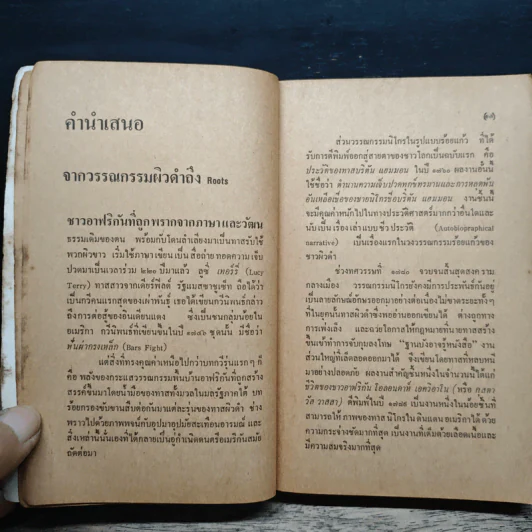 คำนำเสนอ
จากวรรณกรรมผิวดำถึง Roots
ชาวอาฟริกันที่ถูกพรากจากภาษาและวัฒน
ธรรมเดิมของตน พร้อมกับโดนลำเลียงมาเป็นทาสรับใช้
พวกผิวขาว เริ่มใช้ภาษาเขียนเป็นสื่อถ่ายทอดความเจ็บ
ปวดมาเป็นเวลาร่วม ๒๒๐ ปีมาแล้ว ลูซี่ เทอร์รี่ (Lucy
Terry) ทาสสาวจากเดียร์ฟีลด์ รัฐแมสซาชูเซ็ท ถือได้ว่า
เป็นกวีคนแรกสุดของเผ่าพันธุ์ เธอได้เขียนกวีนิพนธ์กล่าว
ถึงการต่อสู้ของอินเดียนแดง ซึ่งเป็นชนกลุ่มน้อยใน
อเมริกา กวีนิพนธ์ที่เขียนขึ้นในปี ๑๗๔๖ ชุดนั้น มีชื่อว่า
(Bars Fight)
แต่สิ่งที่ทรงคุณค่าเหนือไปกว่าบทกวีรุ่นแรก ๆ ก็
คือ พลังของกระแสวรรณกรรมพื้นบ้านอาฟริกันที่ถูกสร้าง
สรรค์ขึ้นมาโดยน้ำมือของทาสทั้งมวลในมลรัฐภาคใต้ บท
ร้อยกรองขับขานสืบต่อกันมาแต่ละรุ่นของทาสผิวดำ ช่าง
พราวไปด้วยภาพพจน์กับอุปมาอุปมัยสะเทือนอารมณ์ และ
สิ่งเหล่านั้นนั่นเองที่ได้กลายเป็นผู้กำเนิดดนตรีอเมริกันสมัย
ถัดต่อมา
ส่วนวรรณกรรมนิโกรในรูปแบบร้อยแก้ว ที่ได้
รับการตีพิมพ์ออกสู่สายตาของชาวโลกเป็นฉบับแรก คือ
ประวัติของทาสบริตัน แฮมมอน ในปี ๑๗๖๐ ผลงานชิ้นนี้
ใช้ชื่อว่า ตำนานความเจ็บปวดทุกข์ทรมานและการทอดพ้น
อันเหลือเชื่อของนายนิโกรชื่อบริตัน แฮมมอน งานชิ้นนี้
จะมีคุณค่าหนักไปในทางประวัติศาสตร์มากกว่าอื่นใดและ
นับเป็นเรื่องเล่าแบบชีวประวัติ (Autobiographical
narrative) เป็นเรื่องแรกในวงวรรณกรรมร้อยแก้วของ
ชาวผิวดำ
ช่วงทศวรรษที่ ๑๗๘๐ จวบจนสิ้นสุดสงคราม
กลางเมือง วรรณกรรมนิโกรยังคงมีการประพันธ์กันอยู่
เป็นลายลักษณ์อักษรออกมาอย่างต่อเนื่องไม่ขาดระยะทั้งๆ
ที่ในยุคนั้นทาสผิวดำซึ่งพออ่านออกเขียนได้ ต่างถูกทาง
การเพ่งเล็ง และฉวยโอกาสให้กฎหมายที่นายทาสสร้าง
ขึ้นเข้าทำการจับกุมลงโทษ “ฐานบังอาจรู้หนังสือ” งาน
ส่วนใหญ่ที่เล็ดลอดออกมาได้ จึงเขียนโดยทาสที่หลบหนี
มาอย่างปลอดภัย ผลงานสำคัญชิ้นหนึ่งในจำนวนนี้ได้แก่
ตีพิมพ์ในปี ๑๗๘๙ เป็นงานหนึ่งในน้อยชิ้นที่
สามารถให้ภาพของทาสนิโกรในดินแดนอเมริกาได้ด้วย
ความกระจ่างชัดมากที่สุด เป็นงานที่เต็มด้วยเลือดเนื้อและ
มีความสมจริงมากที่สุด